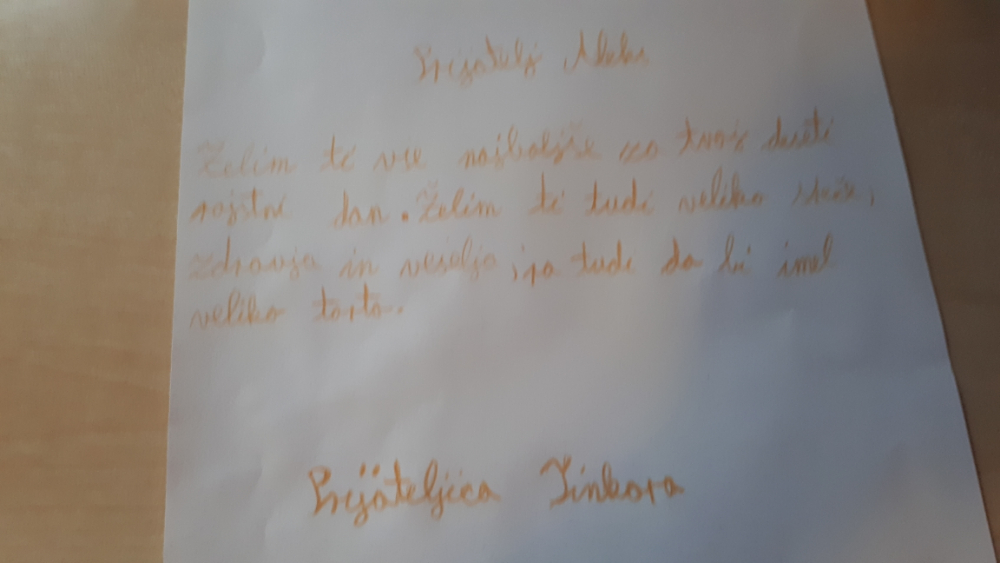 Prijatelj Aleks
Želim ti vse najboljše za tvoj deseti
rojstni dan. Želim ti tudi veliko sreče,
zdravja in veselja, pa tudi da bi imel
veliko torto.
Prijateljica Tinkara